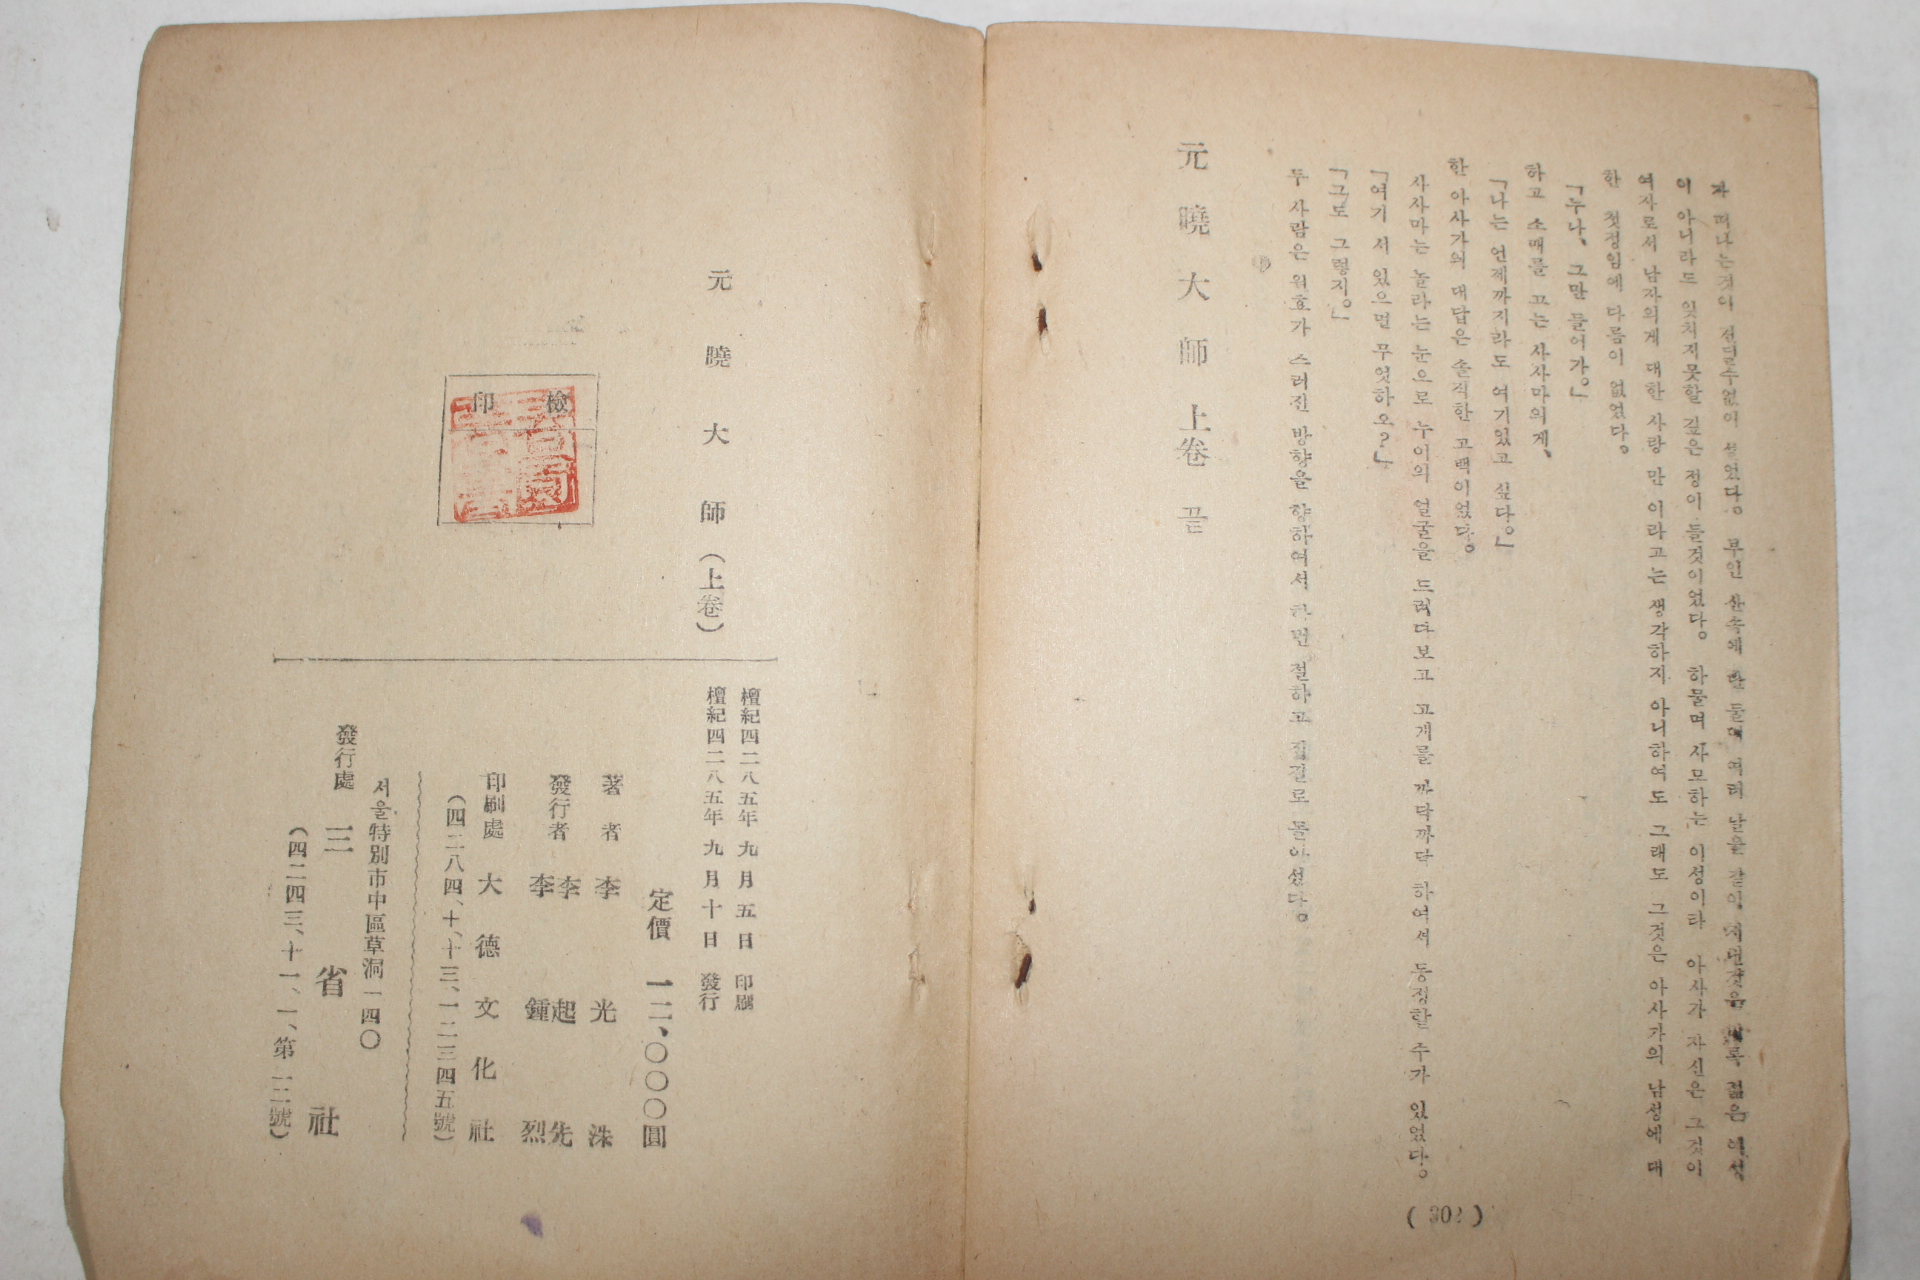 자 떠나는것이 견딜수없이 설었다。 부인 산속에 단 둘이 여러 날을 같이 지낸것을 젊은 여성
이 아니라도 잊치지못할 깊은 정이 들것이었다。 하물며 사모하는 이성이라 아사가 자신은 그것이
여자로서 남자의게 대한 사랑 만 이라고는 생각하지 아니하여도 그래도 그것은 아사가의 남성에 대
한 첫정임에 다름이 없었다。
「누나、그만 들어가。」
하고 소매를 끄는 사사마의게、
「나는 언제까지라도 여기있고 싶다。」
한 아사가의 대답은 솔직한 고백이었다。
사사마는 놀라는 눈으로 누이의 얼굴을 드려다보고 고개를 까닥까닥 하여서 동정할 수가 있었다。
「여기 서 있으면 무엇하오?」
「그도 그렇지。」
두 사람은 원효가 스러진 방향을 향하여서 하번 절하고 집길로 돌아섰다。
元曉大師 上卷 끝
元曉大師(上卷)
檢印
檀紀四二八五年九月五日 印刷
檀紀四二八五年九月十日 發行
定價 一二、〇〇〇圓
著者 李光洙
發行者 李起先
李鍾烈
印刷處 大德文化社
(四二八四、十、十三、一二三四五號)
서울特別市中區草洞一四〇
發行處 三省社
(四二四三、十一、一、第一二號)